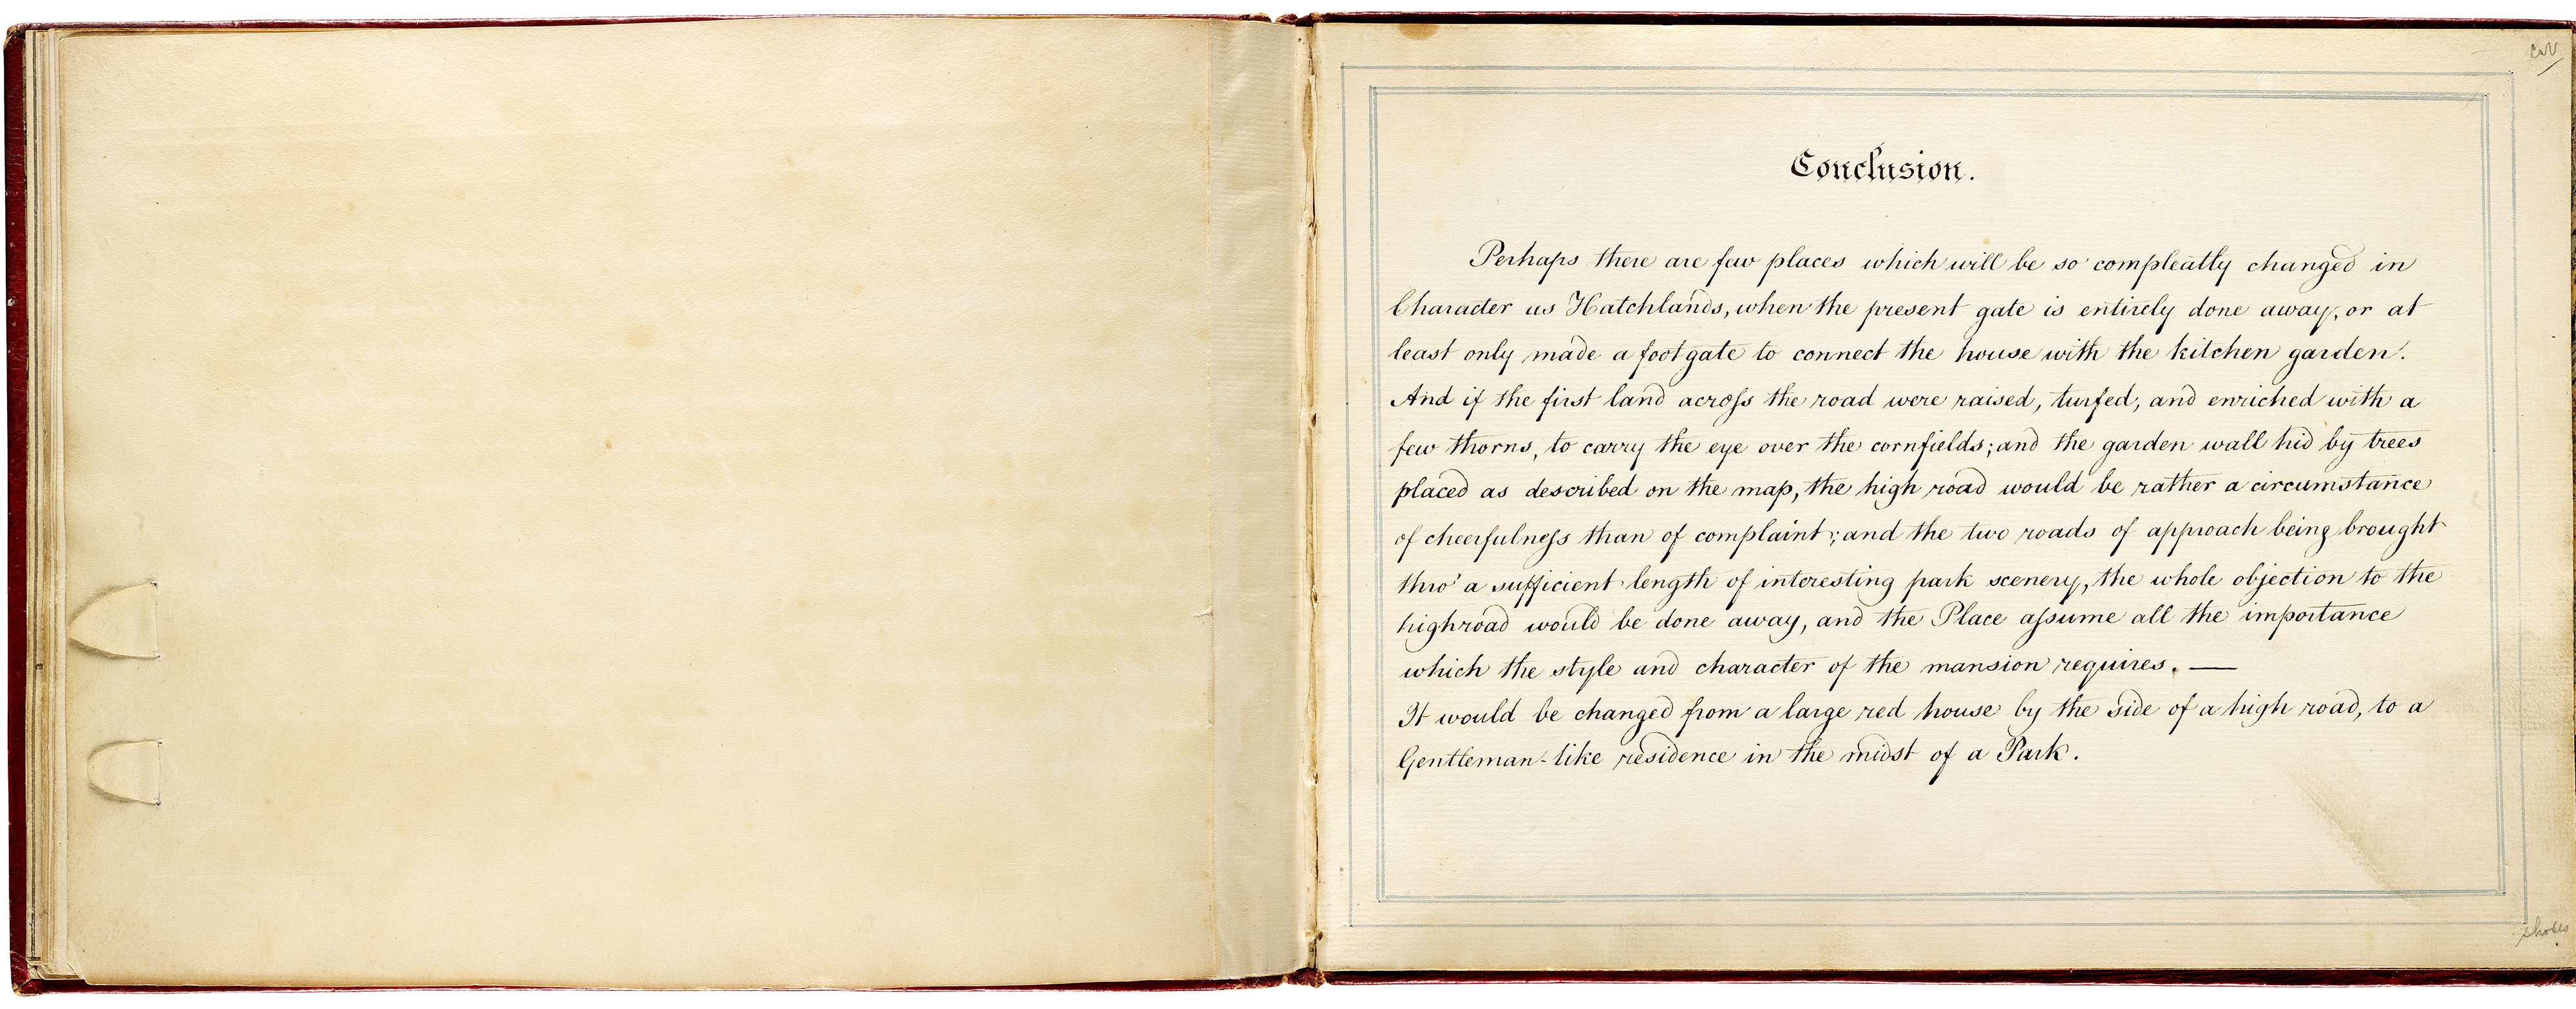 Conclusion.
Perhaps there are few places which will be so compleatly changed in
Character as Hatchlands, when the present gate is entirely done away, or at
least only made a foot gate to connect the house with the kitchen garden.
And if the first land acroſs the road were raised, turfed, and enriched with a
few thorns, to carry the eye over the cornfields; and the garden wall hid by trees
placed as described on the map, the high road would be rather a circumstance
of cheerfulneſs than of complaint; and the two roads of approach being brought
thro' a sufficient length of interesting park scenery, the whole objection to the
highroad would be done away, and the Place aſsume all the importance
which the style and character of the mansion requires. —
It would be changed from a large red house by the side of a high road, to a
Gentleman-like residence in the midst of a Park.